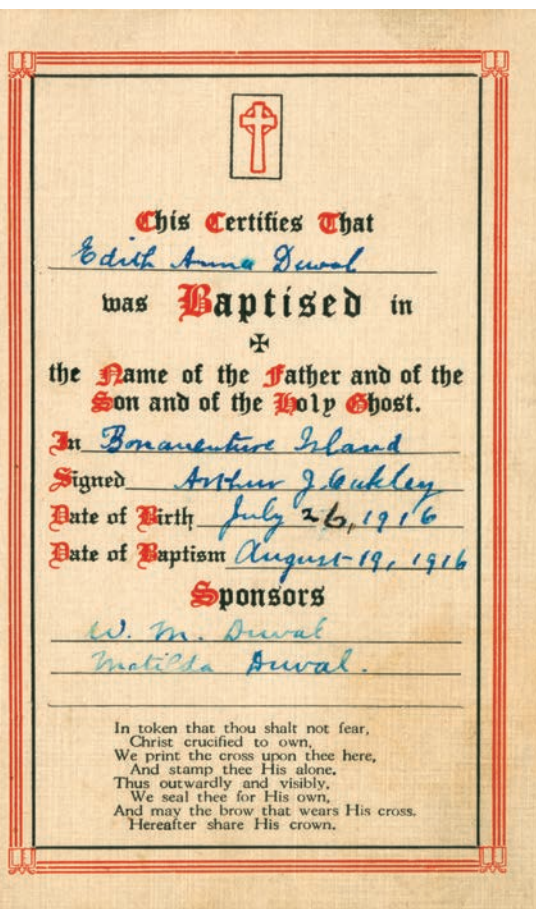 This Certifies That
Edith Anna Duval
was Baptised in
the Name of the Father and of the
Son and of the Holy Ghost.
In Bonaventure Island
Signed Arthur J. Oakley
Date of Birth July 26, 1916
Date of Baptism August 19, 1916
Sponsors
W. M. Duval
Matilda Duval.
In token that thou shalt not fear,
Christ crucified to own,
We print the cross upon thee here,
And stamp thee His alone.
Thus outwardly and visibly,
We seal thee for His own,
And may the brow that wears His cross.
Hereafter share His crown.